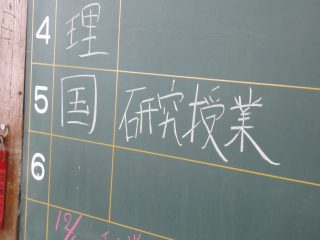 4 理
5 国 研究授業
6
12/